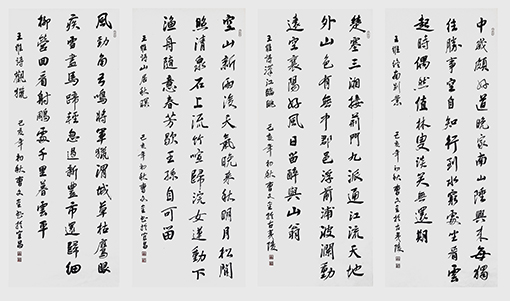 中歲頗好道晚家南山陲興來每獨
往勝事空自知行到水窮處坐看雲
起時偶然值林叟談笑無還期
王維 南別業 己亥年初秋曹文 於古夷陵
楚塞三湘接荊門九派通江流天地
外山色有無中郡邑浮前浦波瀾動
遠空襄陽好風日留醉與山翁
王維詩漢江臨眺 己亥年初秋曹文 於古夷陵
空山新雨後天氣晚來秋明月松間
照清泉石上流竹喧歸浣女蓮動下
漁舟隨意春芳歇王孫自可留
王維詩山居秋暝 己亥年初秋曹文 於宜昌
風勁角弓鳴將軍獵渭城草枯鷹眼
疾雪盡馬蹄輕忽過新豐市還歸細
柳營回看射鵰處千里暮雲平
王維詩觀獵 己亥年初秋曹文 於宜昌